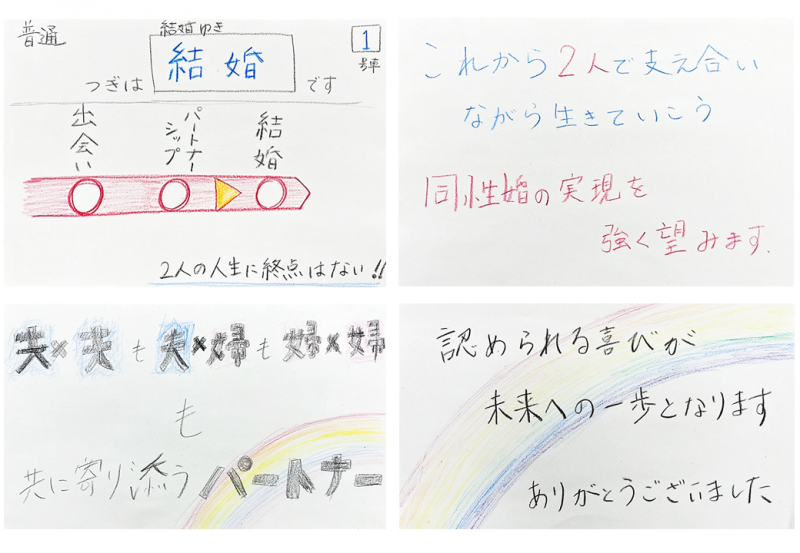 普通
結婚ゆき
つぎは 結婚 です
1
号車
出会い
パートナーシップ
結婚
2人の人生に終点はない!!
これから2人で支え合い
ながら生きていこう
同性婚の実現を
強く望みます.
夫×夫も夫×婦も婦×婦
も
共に寄り添うパートナー
認められる喜びが
未来への一歩となります
ありがとうございました